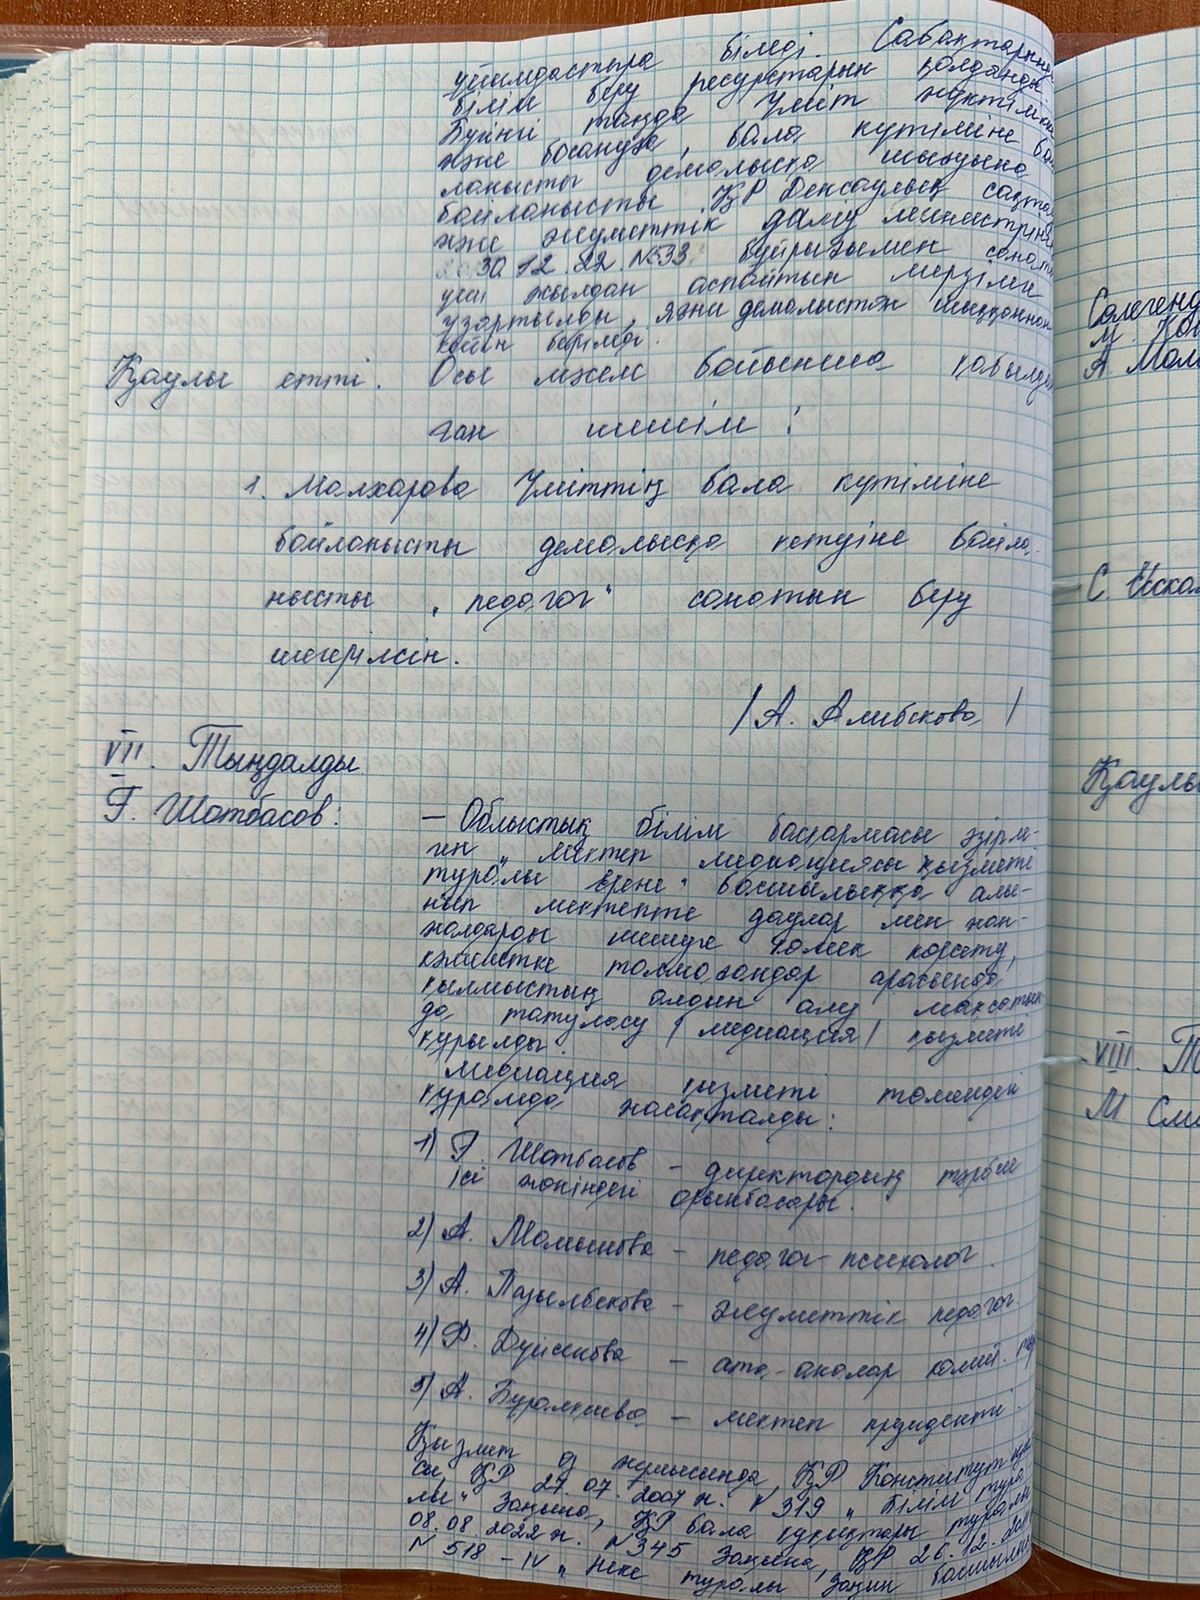 ұйымдастыра біледі. Сабақтарында
білім беру ресурстарын қолданды
Бүгінгі таңда Үміт жүктілікке
және босануға, бала күтіміне бай
ланысты демалысқа шығуына
байланысты ҚР Денсаулық сақтау
және әлеуметтік даму министрінің
30.12.22. №533 бұйрығымен санаты
үш жылдан аспайтын мерзімге
ұзартылған, яғни демалыстан шыққаннан
кейін беріледі.
Қаулы етті. Осы мәселе бойынша қабылдан
ған шешім:
1. Малхарова Үміттің бала күтіміне
байланысты демалысқа кетуіне байла-
нысты "педагог" санатын беру
шегерілсін.
/А. Алибекова /
VII. Тыңдалды
Г. Шотбасов:
— Облыстық білім басқармасы әзірле-
ген "мектеп медиациясы қызметі
туралы ереже" басшылыққа алы-
нып мектепте даулар мен жан-
жалдарды шешуге көмек көрсету,
кәмелетке толмағандар арасында
қылмыстың алдын алу мақсатын-
да татуласу /медиация/ қызметі
құрылды.
Медиация қызметі төмендегі
құрамда жасақталды:
1) Г. Шотбасов – директордың тәрбие
ісі жөніндегі орынбасары.
2) А. Момынова – педагог-психолог.
3) А. Пазылбекова – әлеуметтік педагог.
4) Ф. Дүйсенова – ата-аналар комит.
5) А. Бурамшева – мектеп президенті.
Қызмет өз жұмысында, ҚР Конституция
сы, ҚР 27.07.2007 ж. N 319 "Білім тура
лы" Заңына, ҚР бала құқықтары туралы
08.08.2022 ж. N345 Заңына, ҚР 26.12.2011
N 518-IV "Неке туралы" Заңын басшылық
Сапаргенд
М
А. Мом
С. Искак
Қаулы
VIII. Т
М Сли